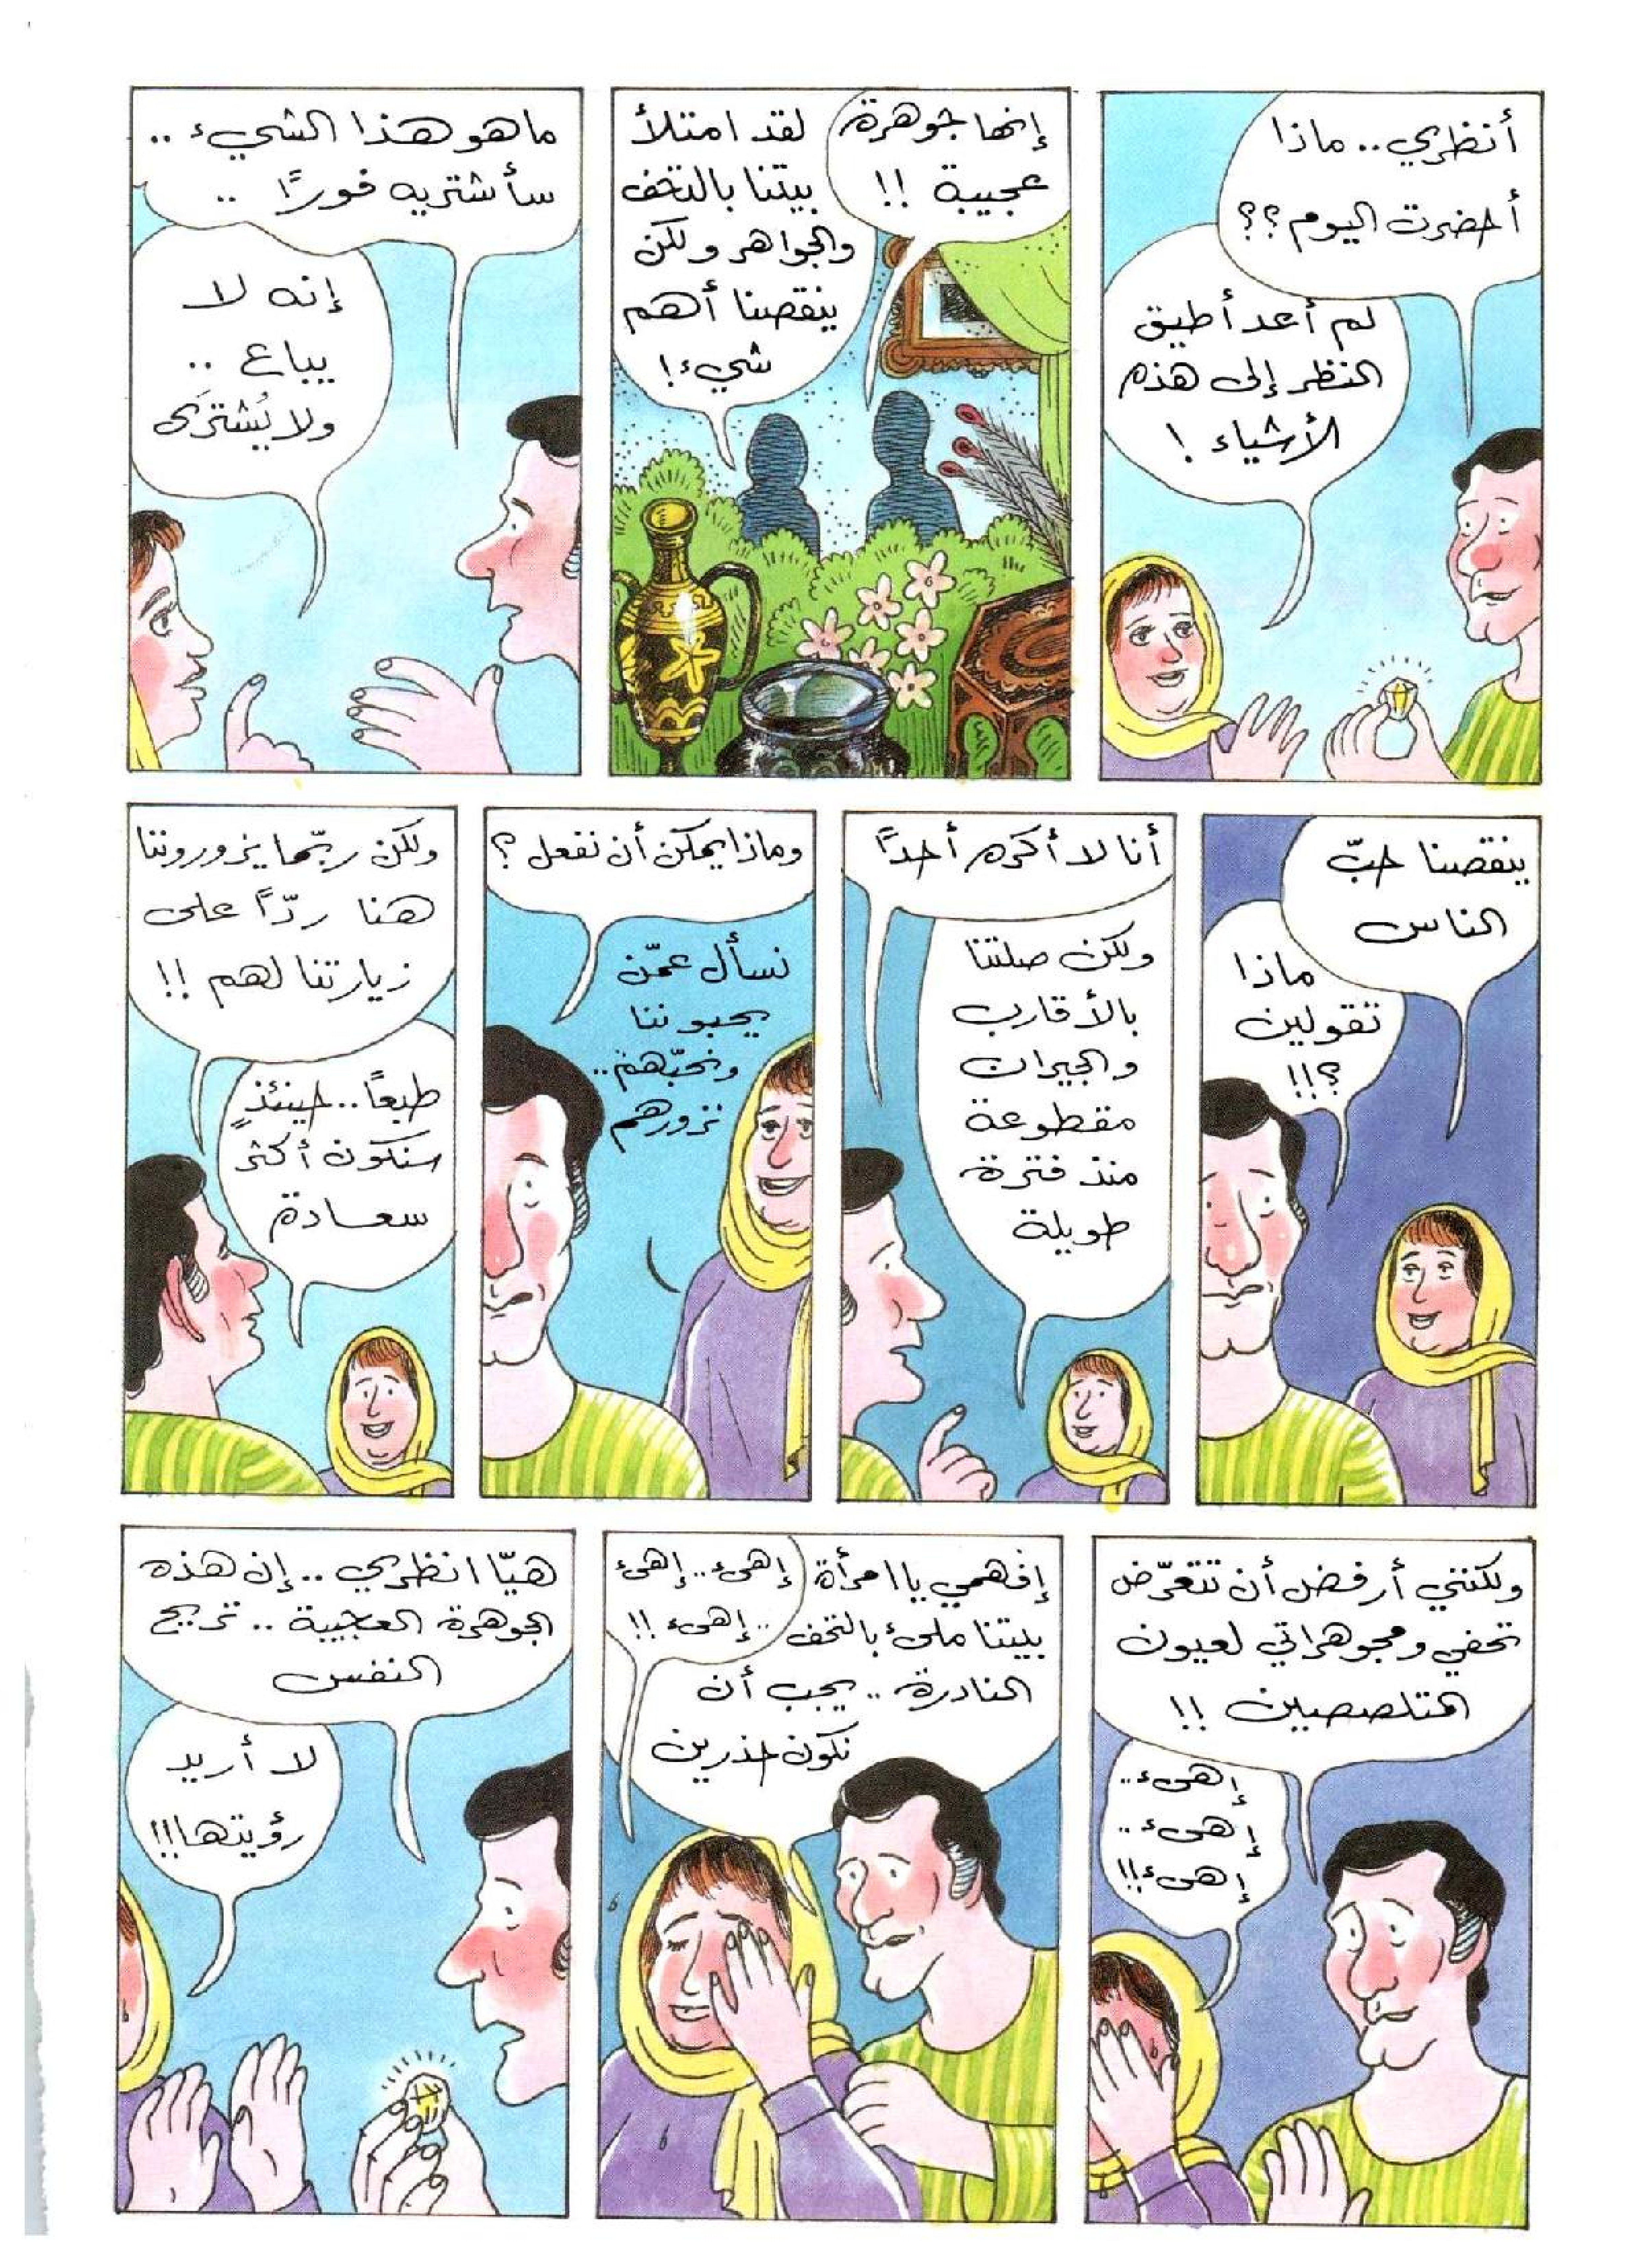 أنظري.. ماذا
أحضرت اليوم؟؟
لم أعد أطيق
النظر إلى هذه
الأشياء !
إنها جوهرة
عجيبة !!
لقد امتلأ
بيتنا بالتحف
والجواهر ولكن
ينقصنا أهم
شيء!
ما هو هذا الشيء ..
سأشتريه فورًا ..
إنه لا
يباع ..
ولا يُشترَى
ينقصنا حبّ
الناس
ماذا
تقولين
؟!!
أنا لا أكره أحدًا
ولكن صلتنا
بالأقارب
والجيران
مقطوعة
منذ فترة
طويلة
وماذا يمكن أن نفعل ؟
نسأل عمّن
يحبوننا
ونحبّهم..
نزورهم
ولكن ربّما يزوروننا
هنا ردًّا على
زيارتنا لهم !!
طبعًا.. حينئذٍ
سنكون أكثر
سعادة
ولكنني أرفض أن تتعرّض
تحفي ومجوهراتي لعيون
المتلصصين !!
إهىء..
إهىء..
إهىء!!
إفهمي يا امرأة
بيتنا ملىء بالتحف
النادرة .. يجب أن
نكون حذرين
إهىء.. إهىء
.. إهىء !!
هيّا انظري .. إن هذه
الجوهرة العجيبة .. تريح
النفس
لا أريد
رؤيتها!!!